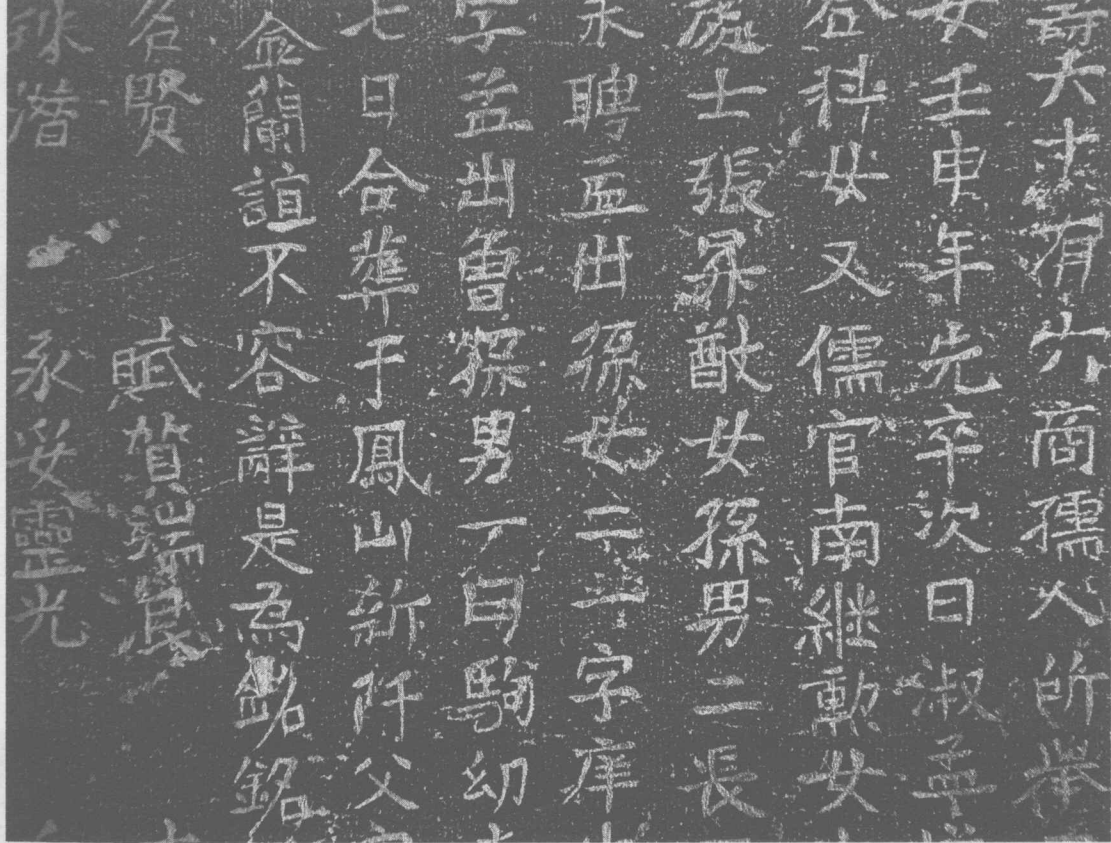 壽夭有六商孺人所舉
女壬申年先卒次曰淑孟
登科女又儒官南継勲女
處士張昇猷女孫男二長
未聘孟出孫女二一字庠
字孟出曾孫男一曰騶幼
七日合葬于鳳山新阡父
金蘭誼不容辭是為銘銘
名賢 賦質端
潜 永妥靈光